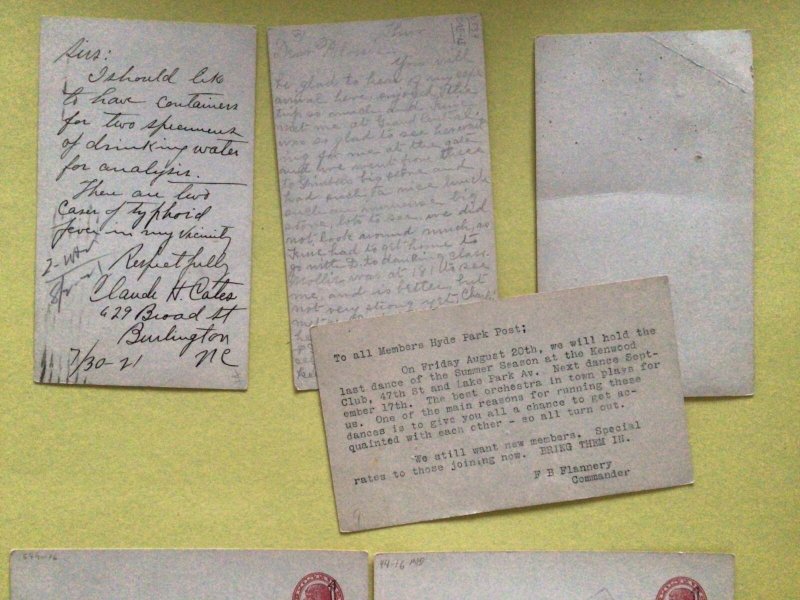 Sirs:
I should like
to have containers
for two specimens
of drinking water
for analysis.
There are two
cases of typhoid
fever in my vicinity
Respectfully
Claude H. Cates
629 Broad St
Burlington
NC
7/30-21
You will
be glad to hear of my safe
arrival here, enjoyed the
trip so much and
met me at Grand Central
was so glad to see her wait
ing for me at the gate
and we went from there
to big store and
had such a nice lunch
such an immense big
store, lots to see, we did
not look around much, as
had to get home to
go with D. to dancing class.
Mollie was at 181 to see
me, and is better but
not very strong yet,
To all Members Hyde Park Post;
On Friday August 20th, we will hold the
last dance of the Summer Season at the Kenwood
Club, 47th St and Lake Park Av. Next dance Sept-
ember 17th. The best orchestra in town plays for
us. One of the main reasons for running these
dances is to give you all a chance to get ac-
quainted with each other - so all turn out.
We still want new members. Special
rates to those joining now. BRING THEM IN.
F B Flannery
Commander